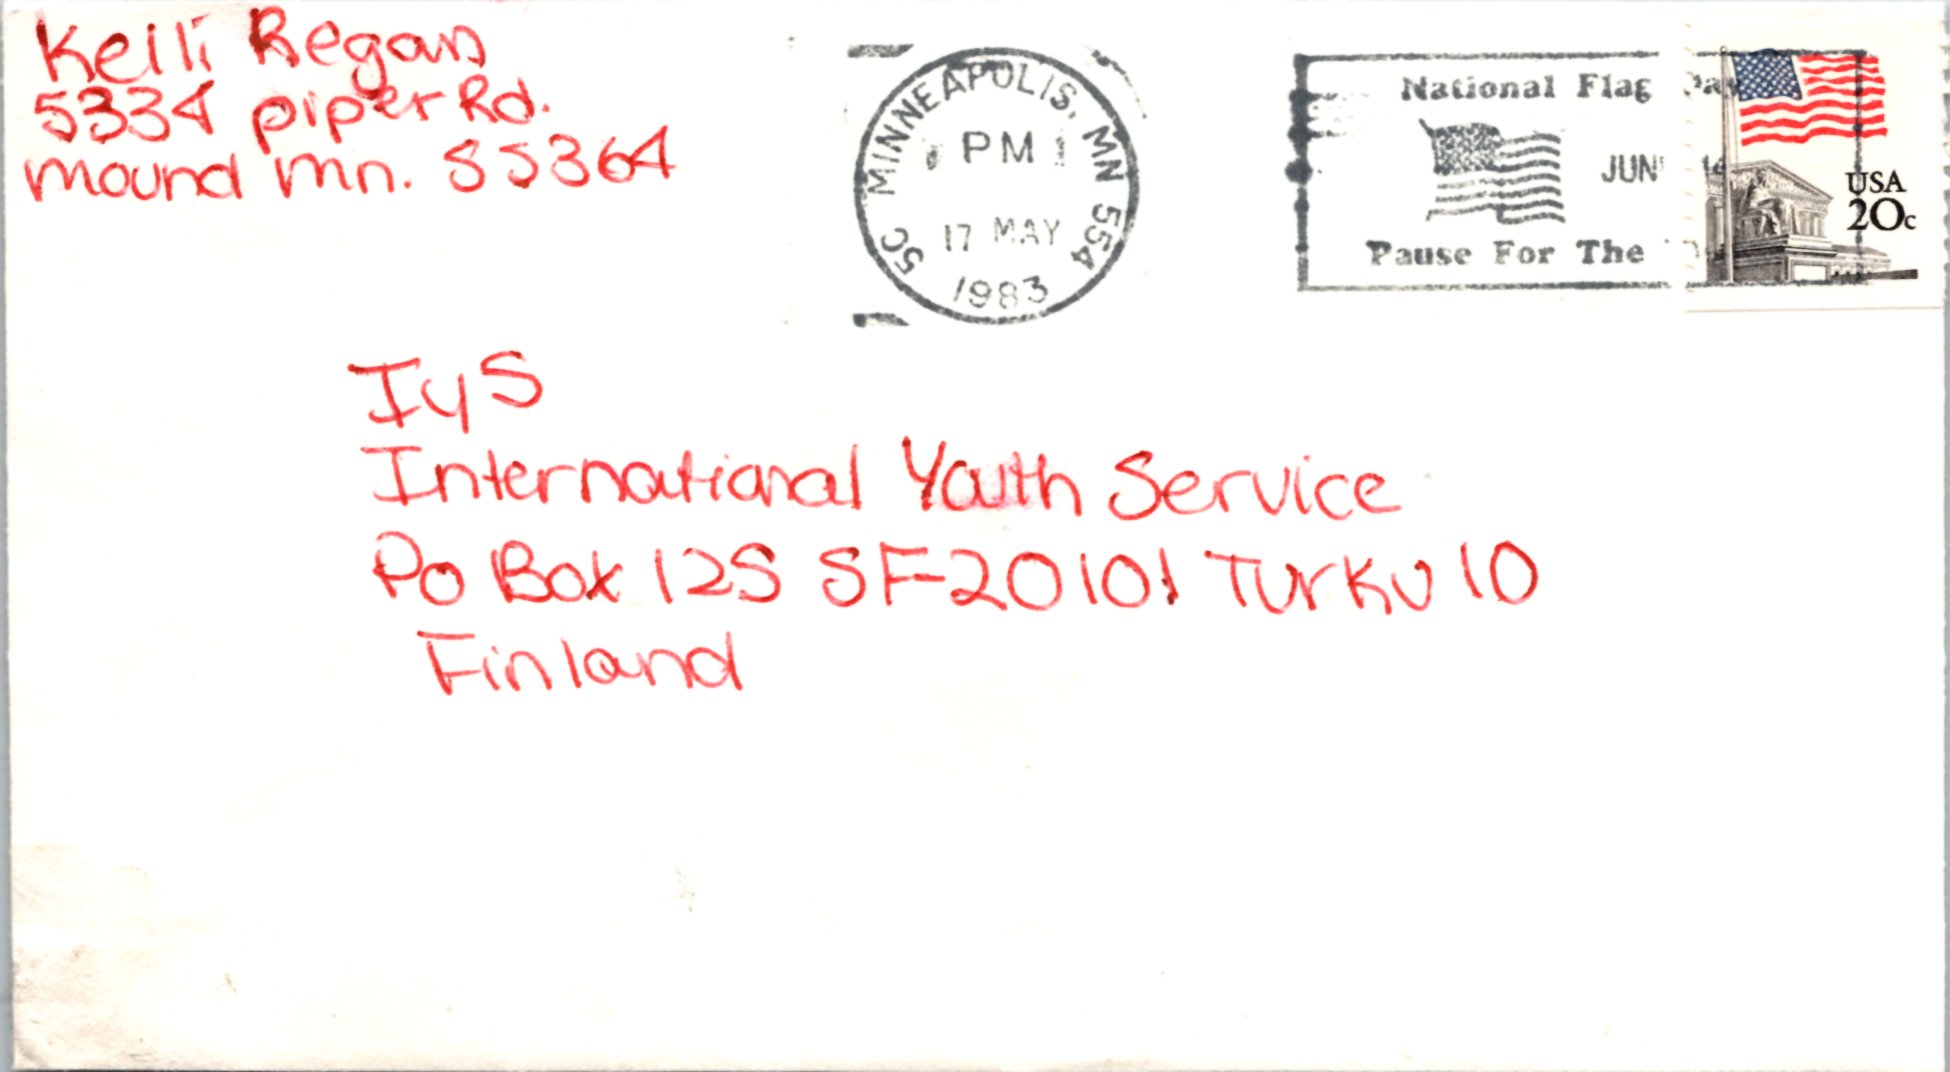 Kelli Regan
5334 piper Rd.
mound mn. 55364
MINNEAPOLIS, MN 554
PM
17 MAY
1983
5C
National Flag Day
JUN 14
Pause For The
USA
20c
IYS
International Youth Service
PO Box 125 SF-20101 Turku 10
Finland